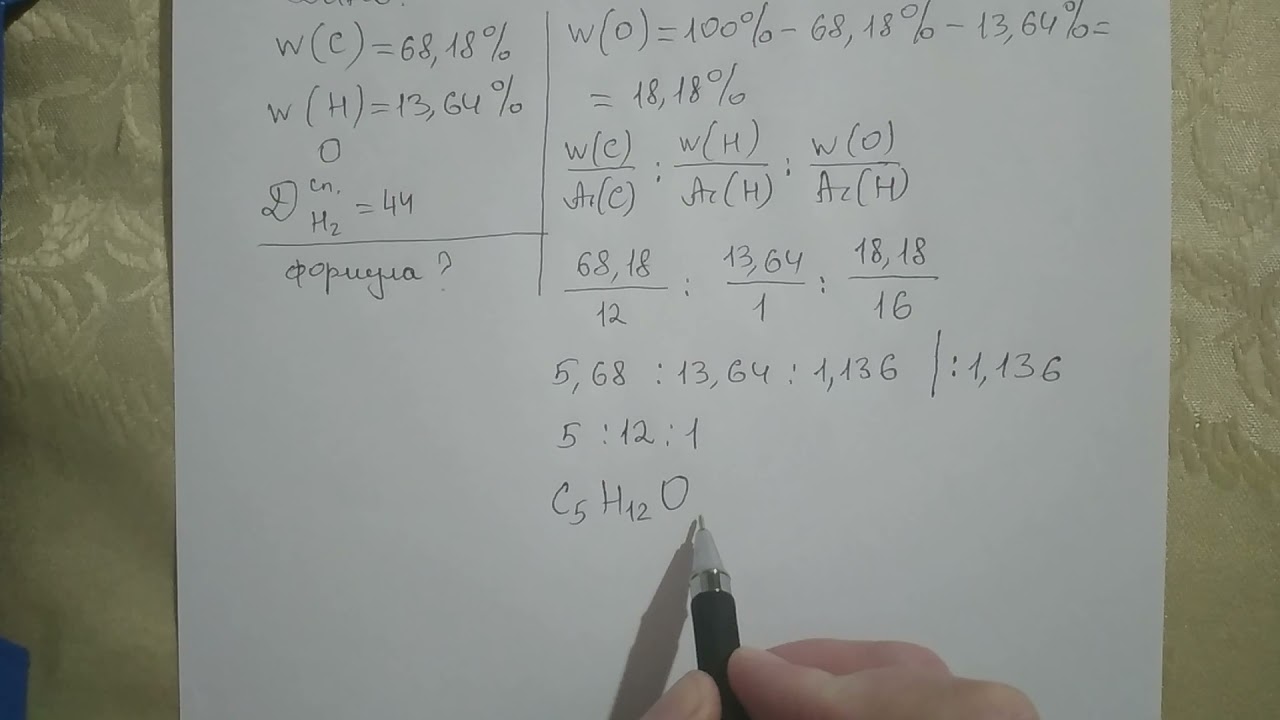 w(C) = 68,18%
w(H) = 13,64%
O
D сп. H₂ = 44
формула ?
w(O) = 100% - 68,18% - 13,64% =
= 18,18%
w(C)/Ar(C) : w(H)/Ar(H) : w(O)/Ar(H)
68,18/12 : 13,64/1 : 18,18/16
5,68 : 13,64 : 1,136 | : 1,136
5 : 12 : 1
C₅H₁₂O